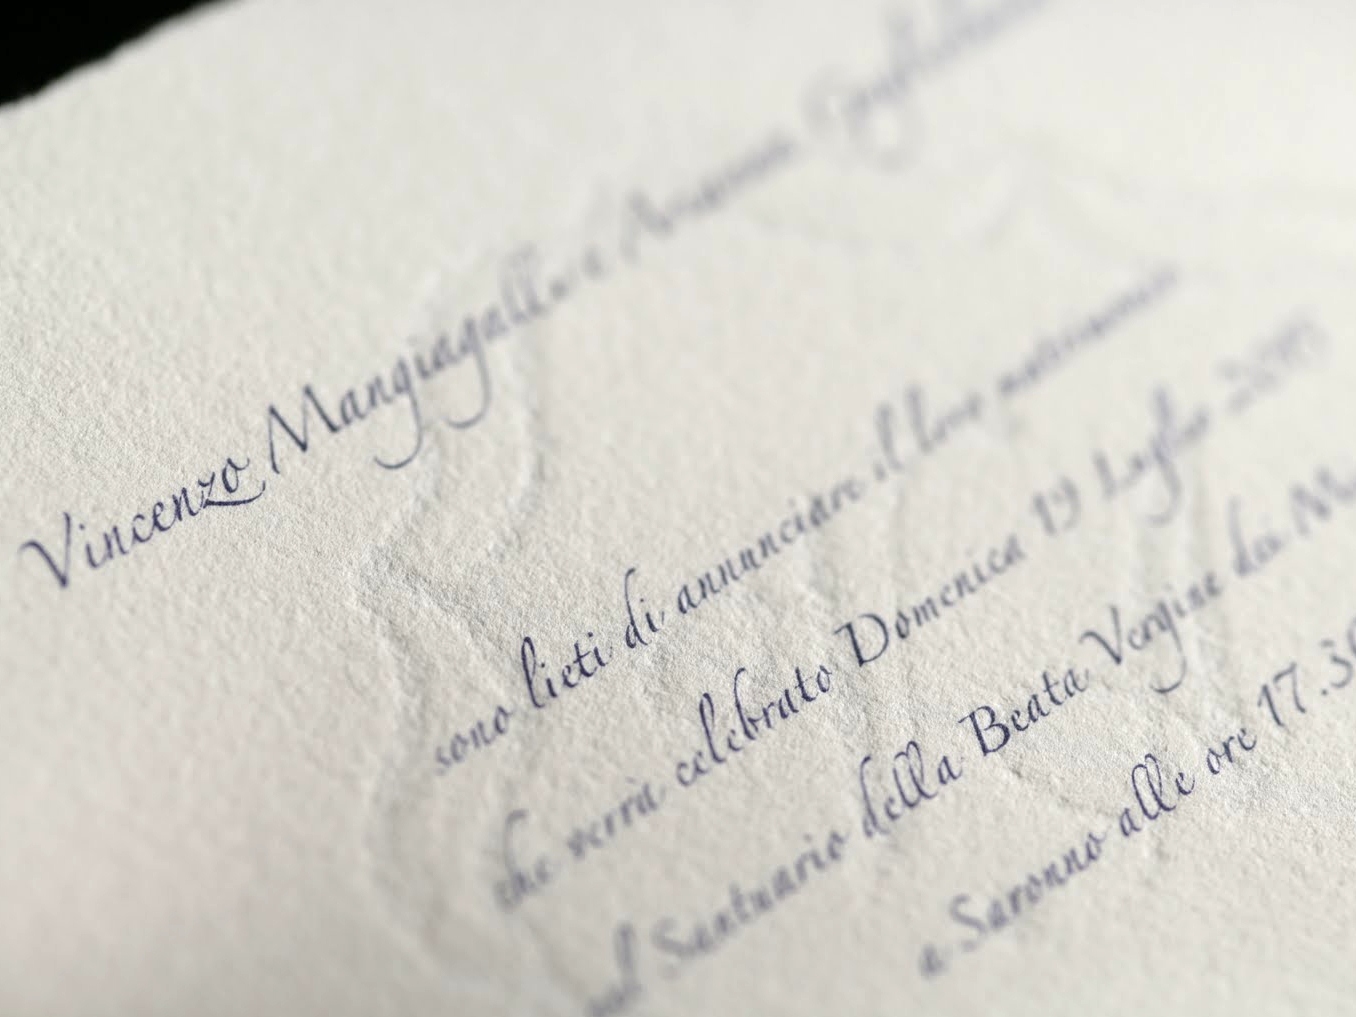 Vincenzo Mangiagalli e
sono lieti di annunciare il loro matrimonio
che verrà celebrato Domenica 19 Luglio
nel Santuario della Beata Vergine dei
a Saronno alle ore 17.30